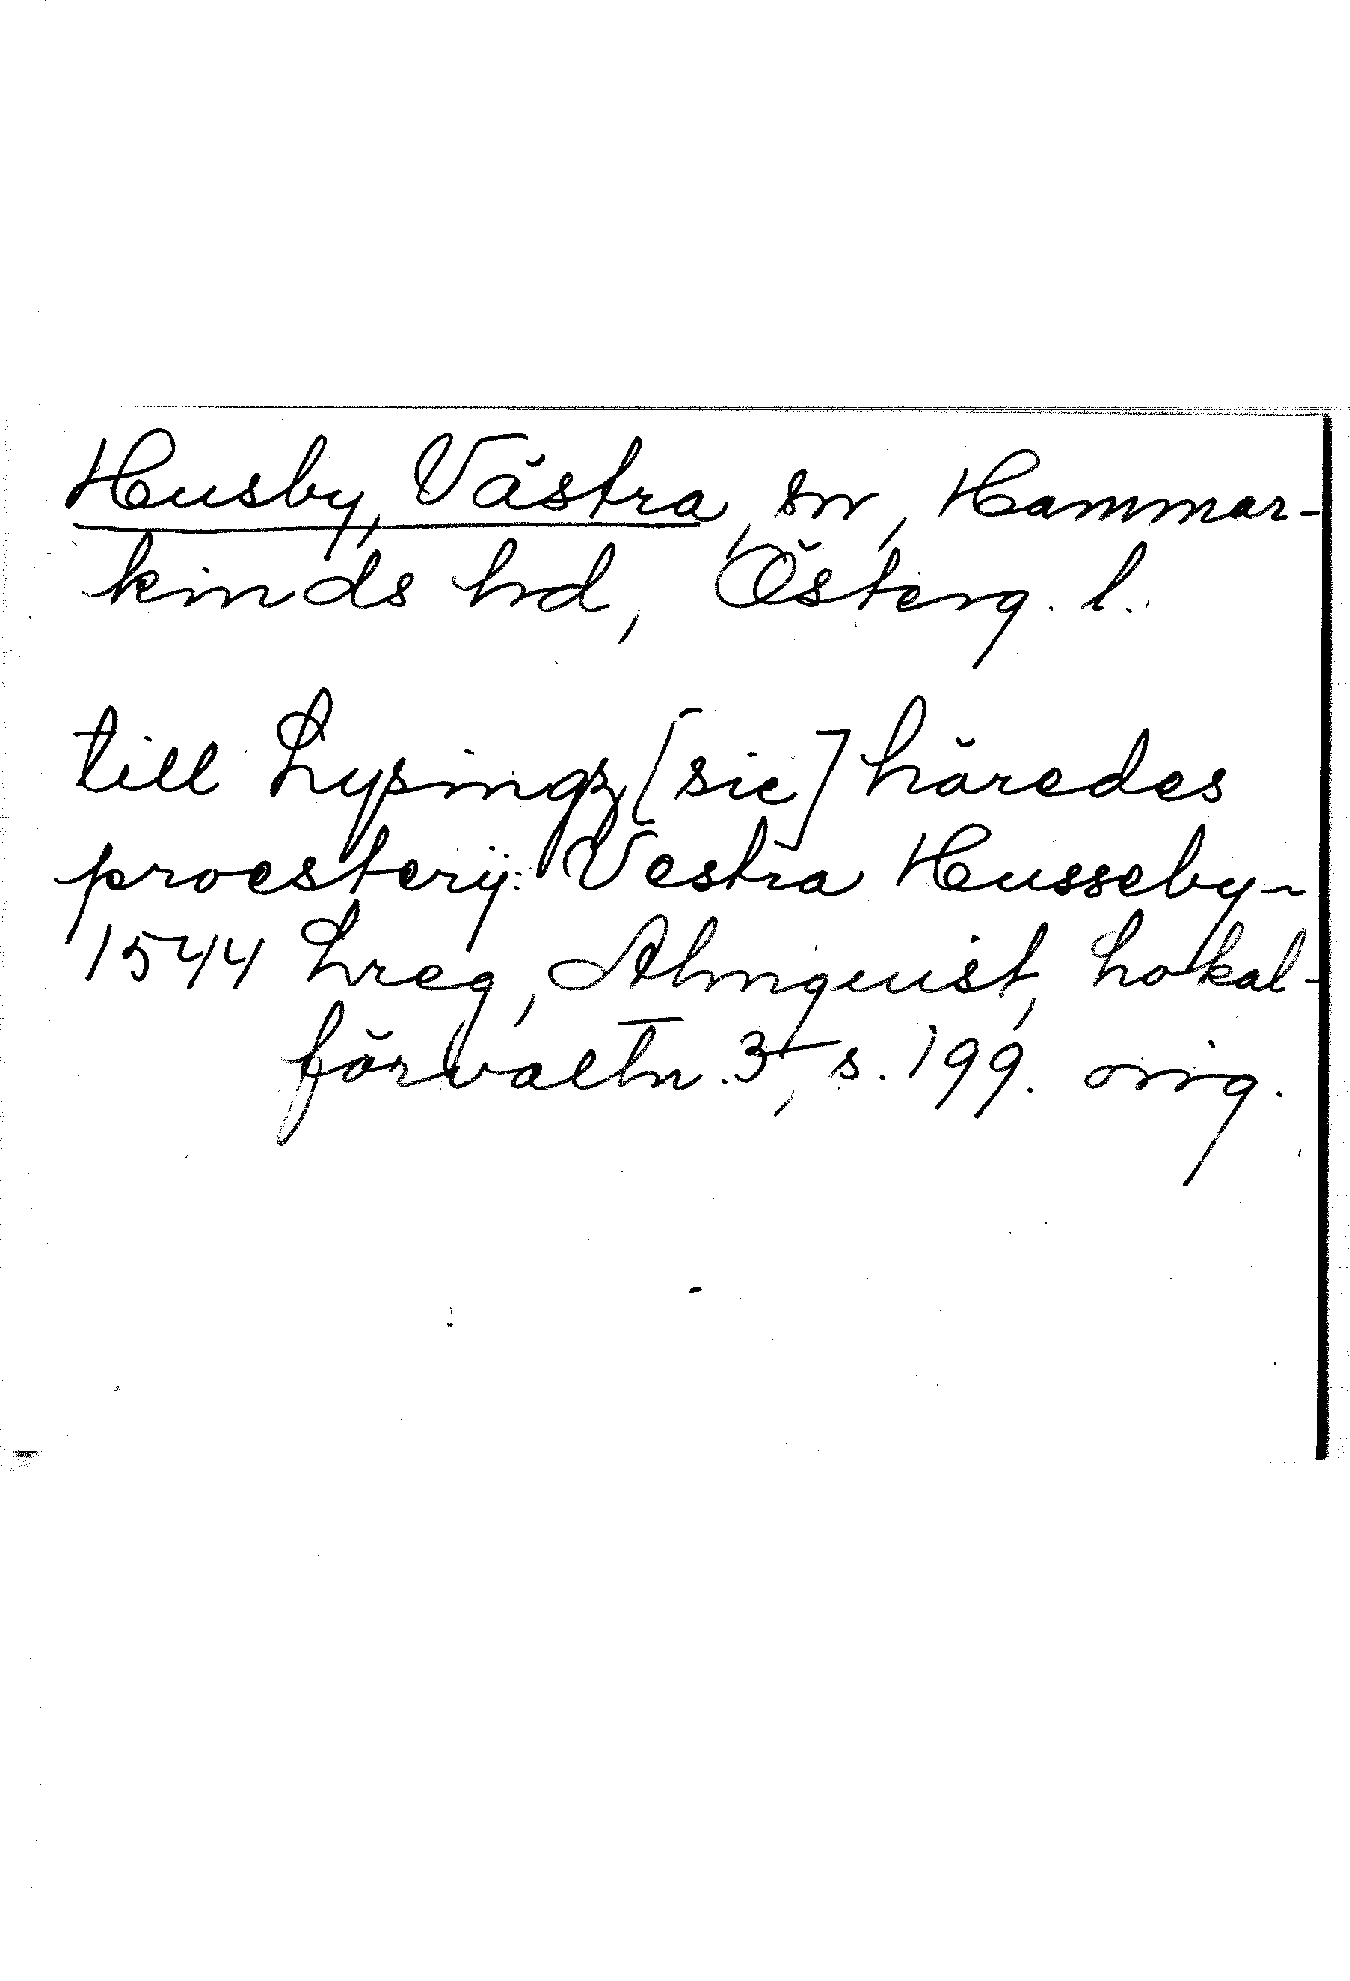 Husby, Västra, sn, Hammar-
kinds hd, Österg. l.
till Lysingz [sic] häredes
proestery: Vestra Husseby ~
1544 Lreg, Almquist, Lokal-
förvaltn. 3, s. 199. orig.